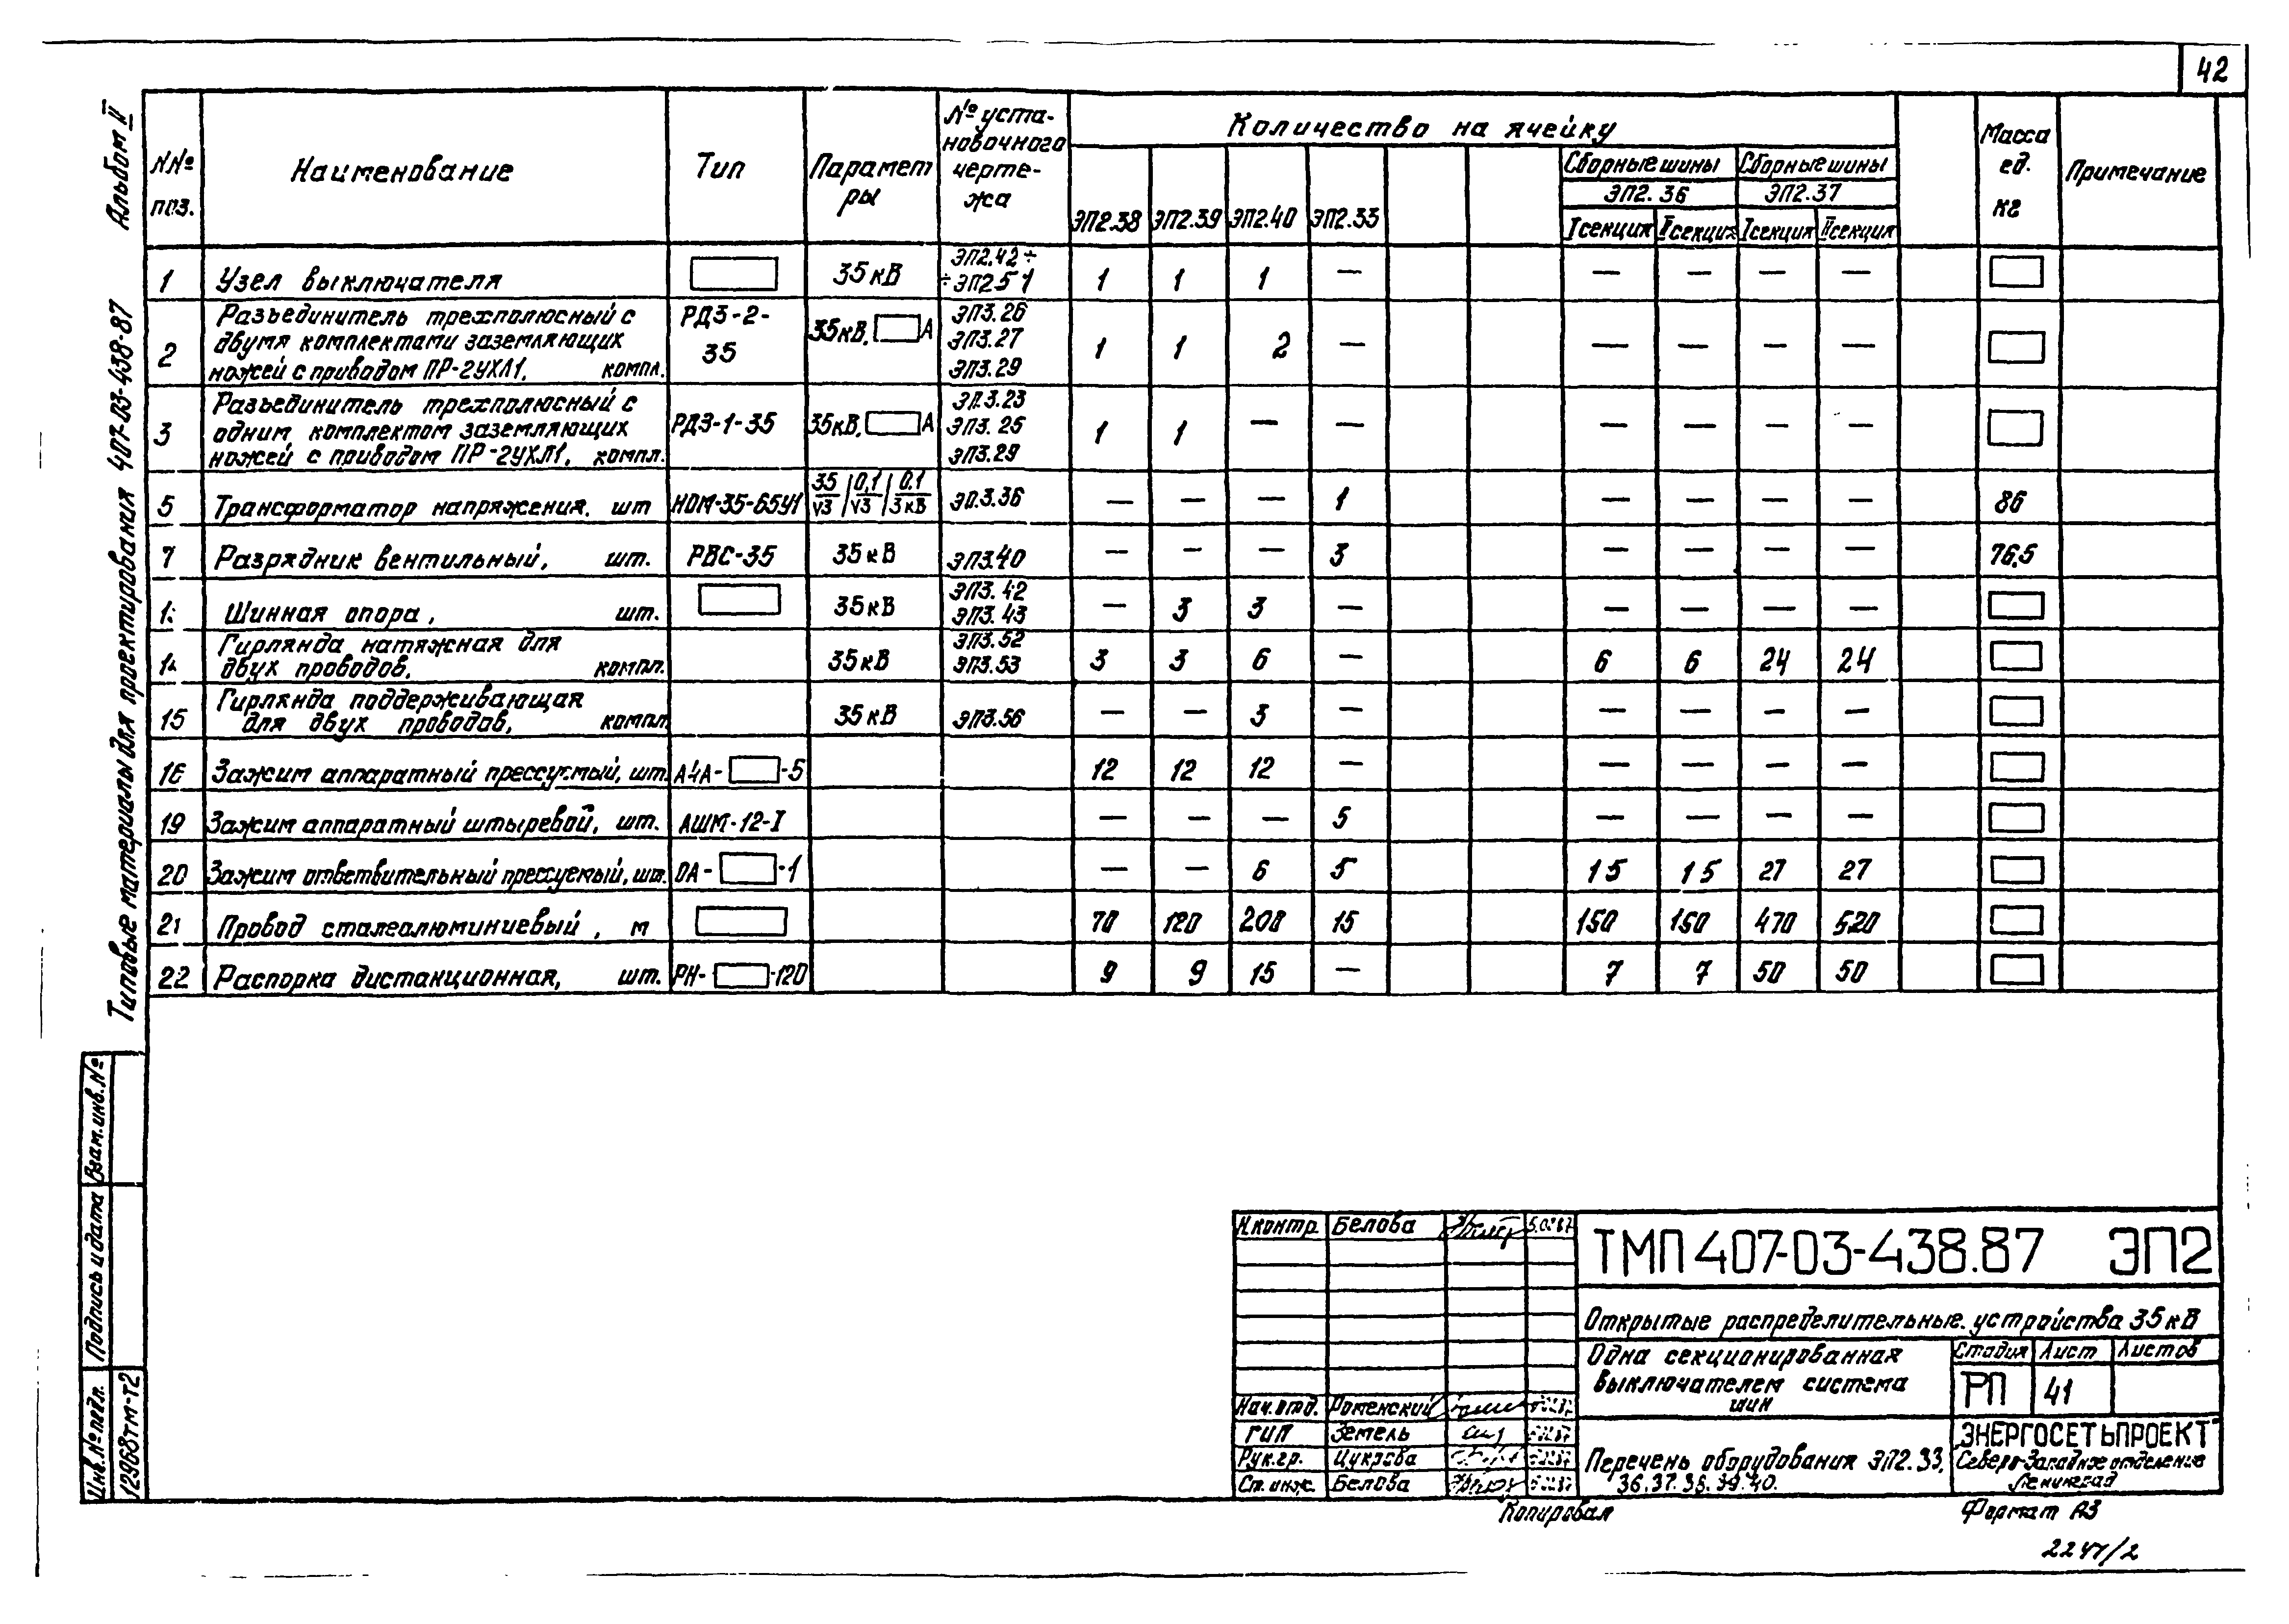 42
Альбом II
Типовые материалы для проектирования 407-03-438-87
NNº поз.
Наименование
Тип
Параметры
Nº установочного чертежа
Количество на ячейку
ЭП2.38 ЭП2.39 ЭП2.40 ЭП2.33
Сборные шины ЭП2.36
Сборные шины ЭП2.37
I секция II секция I секция II секция
Масса ед. кг
Примечание
1 Узел выключателя 35 кВ ЭП2.42÷ ÷ЭП2.51 1 1 1 — — — — —
2 Разъединитель трехполюсный с РДЗ-2- ЭП3.26
двумя комплектами заземляющих 35 35кВ, А ЭП3.27 1 1 2 — — — — —
ножей с приводом ПР-2УХЛ1, компл. ЭП3.29
3 Разъединитель трехполюсный с ЭП.3.23
одним комплектом заземляющих РДЗ-1-35 35кВ, А ЭП3.25 1 1 — — — — — —
ножей с приводом ПР-2УХЛ1, компл. ЭП3.29
5 Трансформатор напряжения, шт НОМ-35-65У1 35/√3 / 0,1/√3 / 0,1/3 кВ ЭП.3.36 — — — 1 — — — — 86
7 Разрядник вентильный, шт. РВС-35 35 кВ ЭП3.40 — — — 3 — — — — 76,5
Шинная опора, шт. 35 кВ ЭП3.42 ЭП3.43 — 3 3 — — — — —
Гирлянда натяжная для ЭП3.52
двух проводов, компл. 35 кВ ЭП3.53 3 3 6 — 6 6 24 24
15 Гирлянда поддерживающая
для двух проводов, компл 35 кВ ЭП3.56 — — 3 — — — — —
16 Зажим аппаратный прессуемый, шт. А4А- -5 12 12 12 — — — — —
19 Зажим аппаратный штыревой, шт. АШМ-12-I — — — 5 — — — —
20 Зажим ответвительный прессуемый, шт. ОА- -1 — — 6 5 15 15 27 27
21 Провод сталеалюминиевый, м 70 120 208 15 150 150 470 520
22 Распорка дистанционная, шт. РН- -120 9 9 15 — 7 7 50 50
Взам.инв.Nº
Подпись и дата
Инв.Nº подл.
12968тм-т2
Н.контр Белова
Нач.отд. Роменский
ГИП Земель
Рук.гр. Цукрова
Ст.инж. Белова
ТМП 407-03-438.87 ЭП2
Открытые распределительные устройства 35 кВ
Одна секционированная
выключателем система
шин
Стадия Лист Листов
РП 41
Перечень оборудования ЭП2.33,
36.37.38.39.40.
ЭНЕРГОСЕТЬПРОЕКТ
Северо-Западное отделение
Ленинград
Копировал
Формат А3